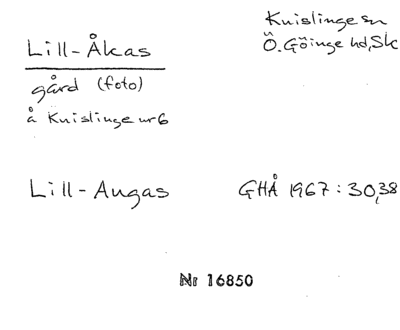 Lill-Åkas
Knislinge sn
Ö. Göinge hd, Sk
gård (foto)
å Knislinge nr 6
Lill-Augas
GHÅ 1967 : 30,38
Nr 16850